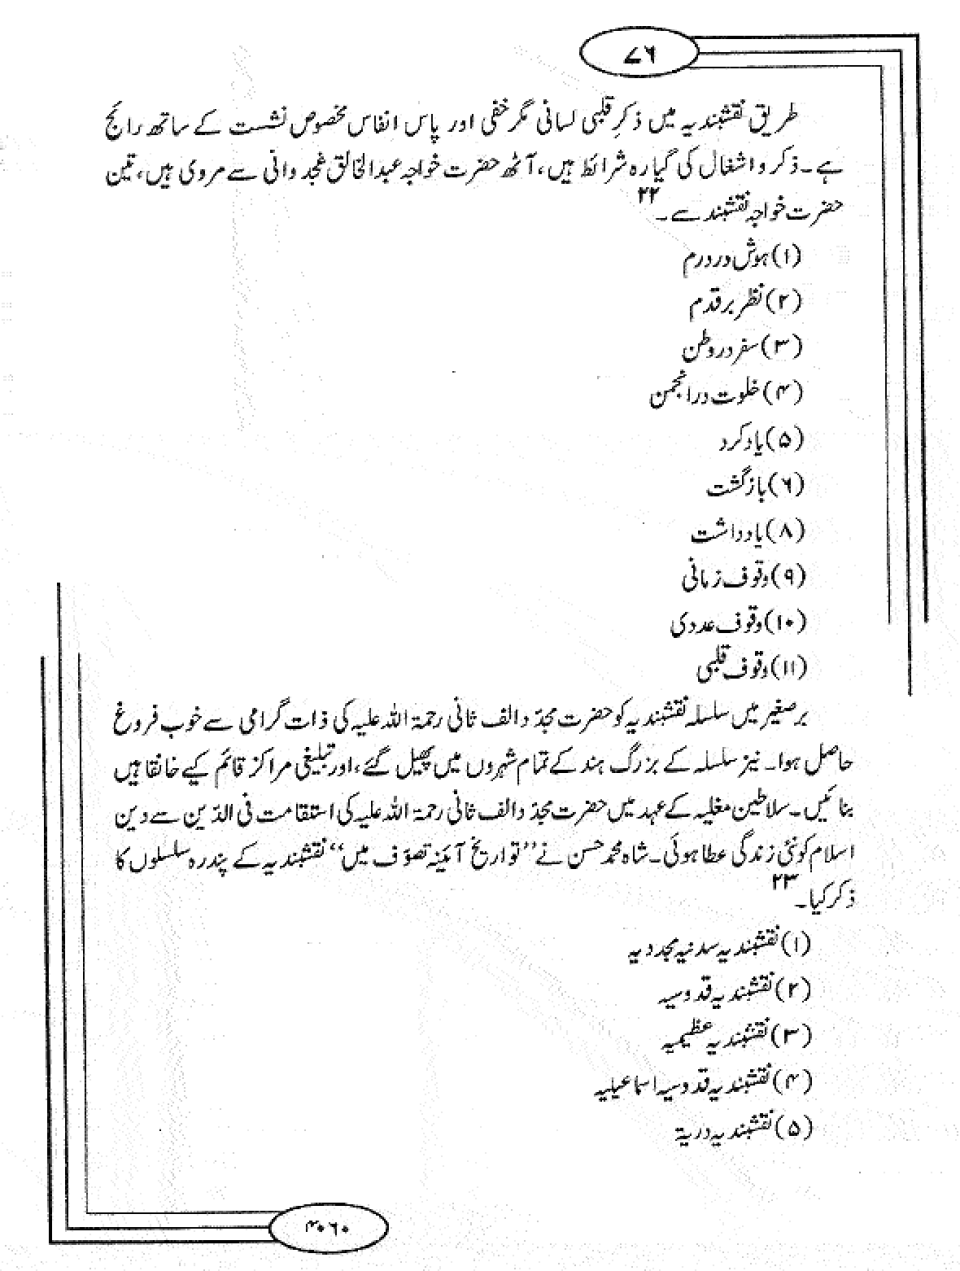 ۷۶
طریق نقشبندیہ میں ذکرِ قلبی لسانی مگر خفی اور پاس انفاس مخصوص نشست کے ساتھ رائج
ہے۔ ذکر و اشغال کی گیارہ شرائط ہیں، آٹھ حضرت خواجہ عبدالخالق غجدوانی سے مروی ہیں، تین
حضرت خواجہ نقشبند سے۔۲۲
(۱) ہوش در درم
(۲) نظر بر قدم
(۳) سفر در وطن
(۴) خلوت در انجمن
(۵) یاد کرد
(۶) بازگشت
(۸) یادداشت
(۹) وقوف زمانی
(۱۰) وقوف عددی
(۱۱) وقوف قلبی
برصغیر میں سلسلہ نقشبندیہ کو حضرت مجدّد الف ثانی رحمۃ اللہ علیہ کی ذات گرامی سے خوب فروغ
حاصل ہوا۔ نیز سلسلہ کے بزرگ ہند کے تمام شہروں میں پھیل گئے، اور تبلیغی مراکز قائم کیے خانقاہیں
بنائیں۔ سلاطین مغلیہ کے عہد میں حضرت مجدّد الف ثانی رحمۃ اللہ علیہ کی استقامت فی الدّین سے دین
اسلام کو نئی زندگی عطا ہوئی۔ شاہ محمد حسن نے ’’تواریخ آئینہ تصوّف میں‘‘ نقشبندیہ کے پندرہ سلسلوں کا
ذکر کیا۔۲۳
(۱) نقشبندیہ سدنیہ مجددیہ
(۲) نقشبندیہ قدوسیہ
(۳) نقشبندیہ عظیمیہ
(۴) نقشبندیہ قدوسیہ اسماعیلیہ
(۵) نقشبندیہ دریۃ
۴۰۶۰